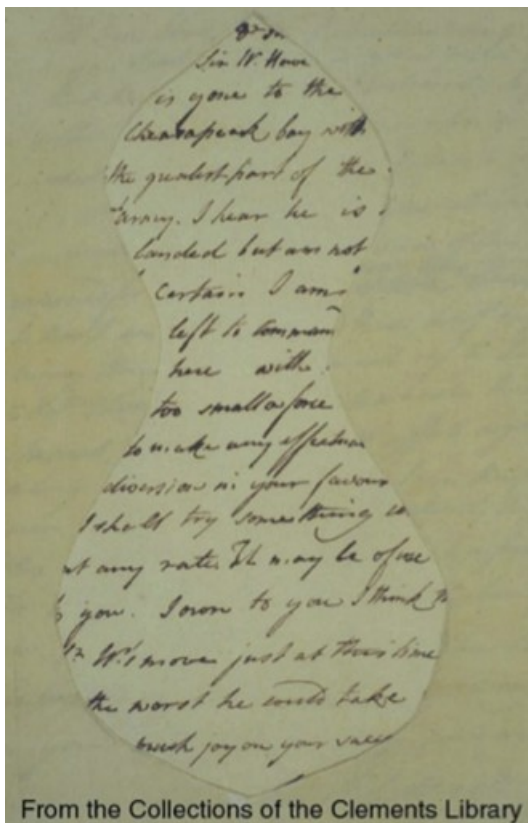 Sir W. Howe
is gone to the
Cheasapeak bay with
the greatest part of the
army. I hear he is
landed but am not
certain. I am
left to command
here with
too small a force
to make any effectual
diversion in your favour
I shall try something
at any rate. It may be of use
to you. I own to you I think
Sr W's move just at this time
the worst he could take
much joy on your succe
From the Collections of the Clements Library